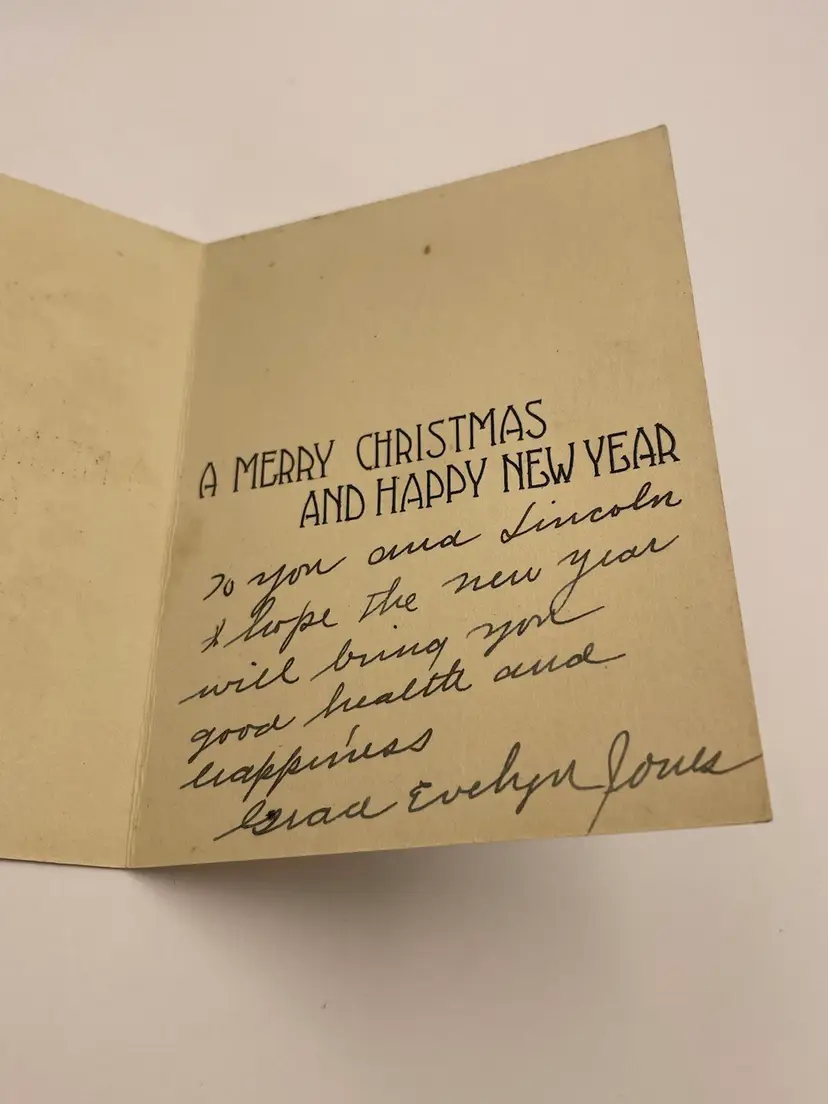 A MERRY CHRISTMAS
AND HAPPY NEW YEAR
To you and Lincoln
I hope the new year
will bring you
good health and
happiness
Evelyn Jones